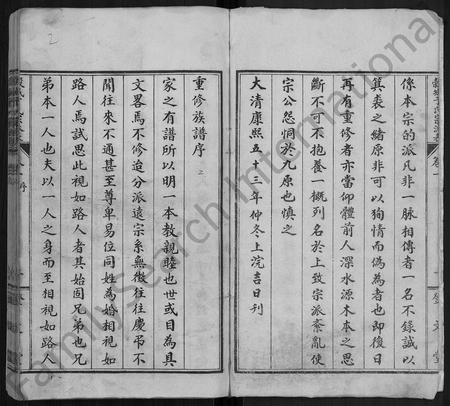 係本宗的派凡非一脈相傳者一名不錄誠以
箕裘之緒原非可以狥情而偽為者也即後日
再有重修者亦當仰體前人深水源木本之思
斷不可不抱養一概列名於上致宗派紊亂使
宗公怨恫於九原也慎之
大清康熙五十三年仲冬上浣吉日刋
重修族譜序
家之有譜所以明一本教親睦也世或目為具
文畧焉不修迨分派遠宗系無徵往往慶弔不
聞往來不通甚至尊卑易位同姓為婚相視如
路人焉試思此視如路人者其始固兄弟也兄
弟本一人也夫以一人之身而至相視如路人
FamilySearch International
2